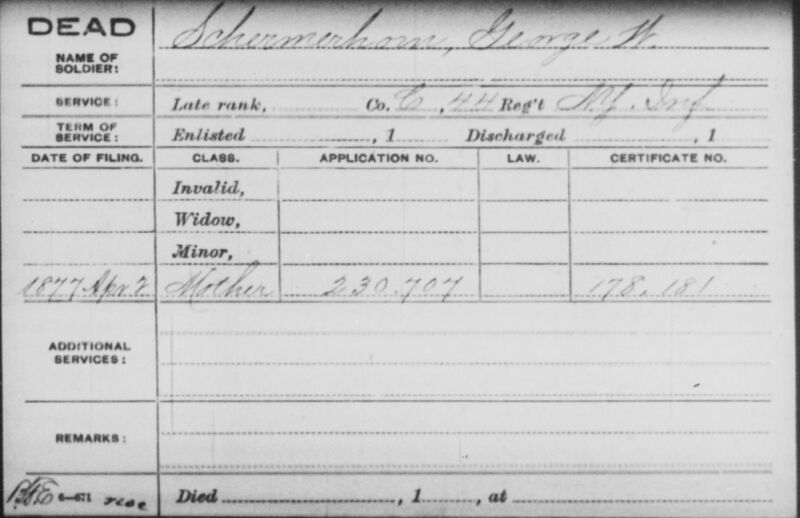 DEAD
NAME OF SOLDIER: Schermerhorn, George W.
SERVICE: Late rank, Co. C, 44 Reg't N.Y. Inf
TERM OF SERVICE: Enlisted , 1 Discharged , 1
DATE OF FILING. CLASS. APPLICATION NO. LAW. CERTIFICATE NO.
Invalid,
Widow,
Minor,
1877 Apr 2 Mother 230.707 178,181
ADDITIONAL SERVICES:
REMARKS:
6—671 Died , 1 , at